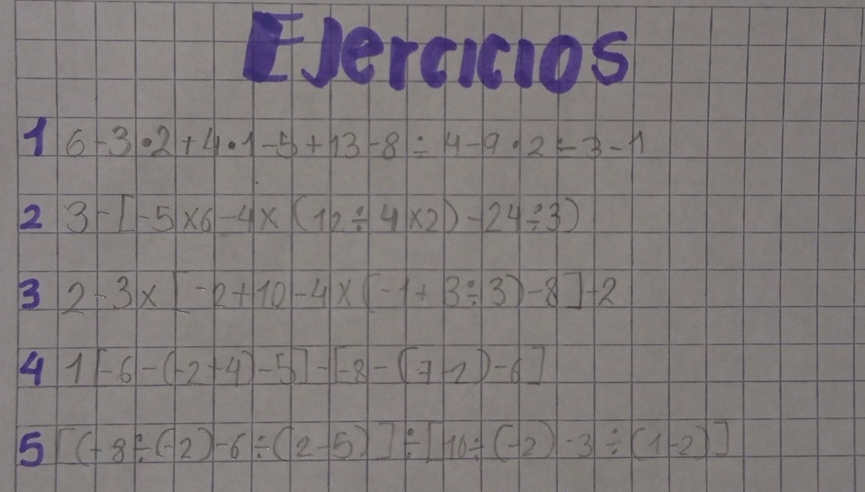 Ejercicios
1 6-3•2+4•1-5+13-8÷4-9•2÷3-1
2 3-[-5×6-4×(12÷4×2)-24÷3)
3 2-3×[-2+10-4×(-1+3÷3)-8]+2
4 1[-6-(-2+4)-5]-[-8-(7-2)-6]
5 [(-8÷(-2)-6÷(2-5)]÷[10÷(-2)-3÷(1-2)]